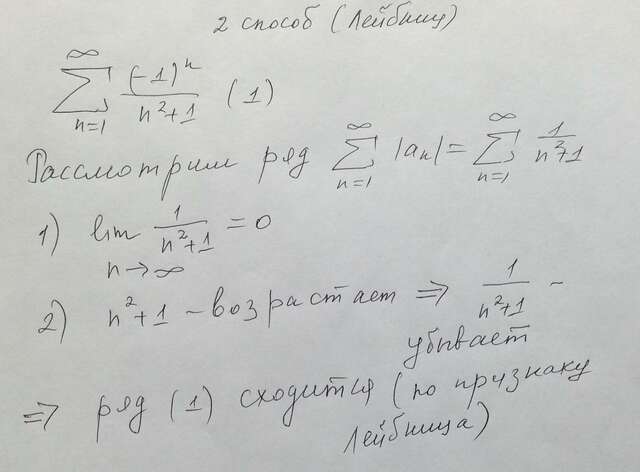 2 способ (Лейбниц)
∑_{n=1}^{∞} (-1)^n / (n²+1) (1)
Рассмотрим ряд ∑_{n=1}^{∞} |a_n| = ∑_{n=1}^{∞} 1/(n²+1)
1) lim_{n→∞} 1/(n²+1) = 0
2) n²+1 - возрастает ⇒ 1/(n²+1) -
убывает
⇒ ряд (1) сходится (по признаку
Лейбница)